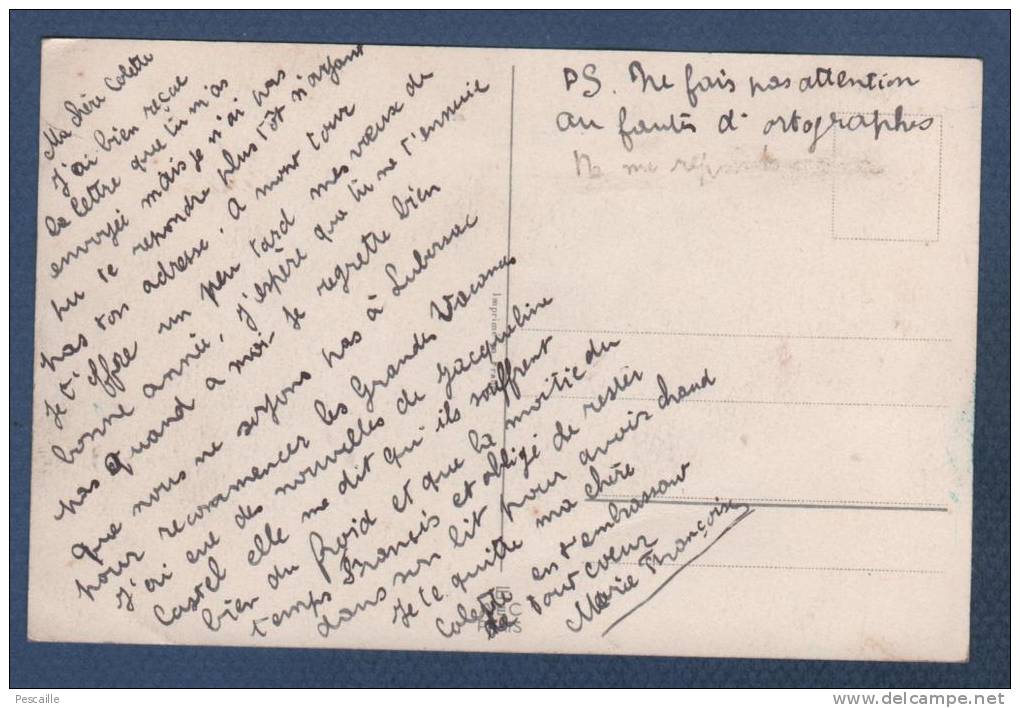 Ma chère Colette
J'ai bien reçue
la lettre que tu m'as
envoyée mais je n'ai pas
pu te repondre plus tôt n'ayant
pas ton adresse. A mont tour
Je t'offre un peu tard mes vœux de
bonne année, J'espère que tu ne t'ennuie
pas Quand a moi Je regrette bien
que nous ne soyons pas à Lubersac
pour recommencer les Grandes Vacances
J'ai eue des nouvelles de Jacqueline
Castel elle me dit qu'ils souffrent
bien du froid et que la moitie du
temps Francis et obligé de rester
dans son lit pour avoir chaud
Je te quitte ma chère
Colette en t'embrassant
de tout coeur
Marie Françoise
PS. Ne fais pas attention
au fautes d'ortographes
Ne me
Imprimé
PARIS
Pescaille
http://www.delcampe.net